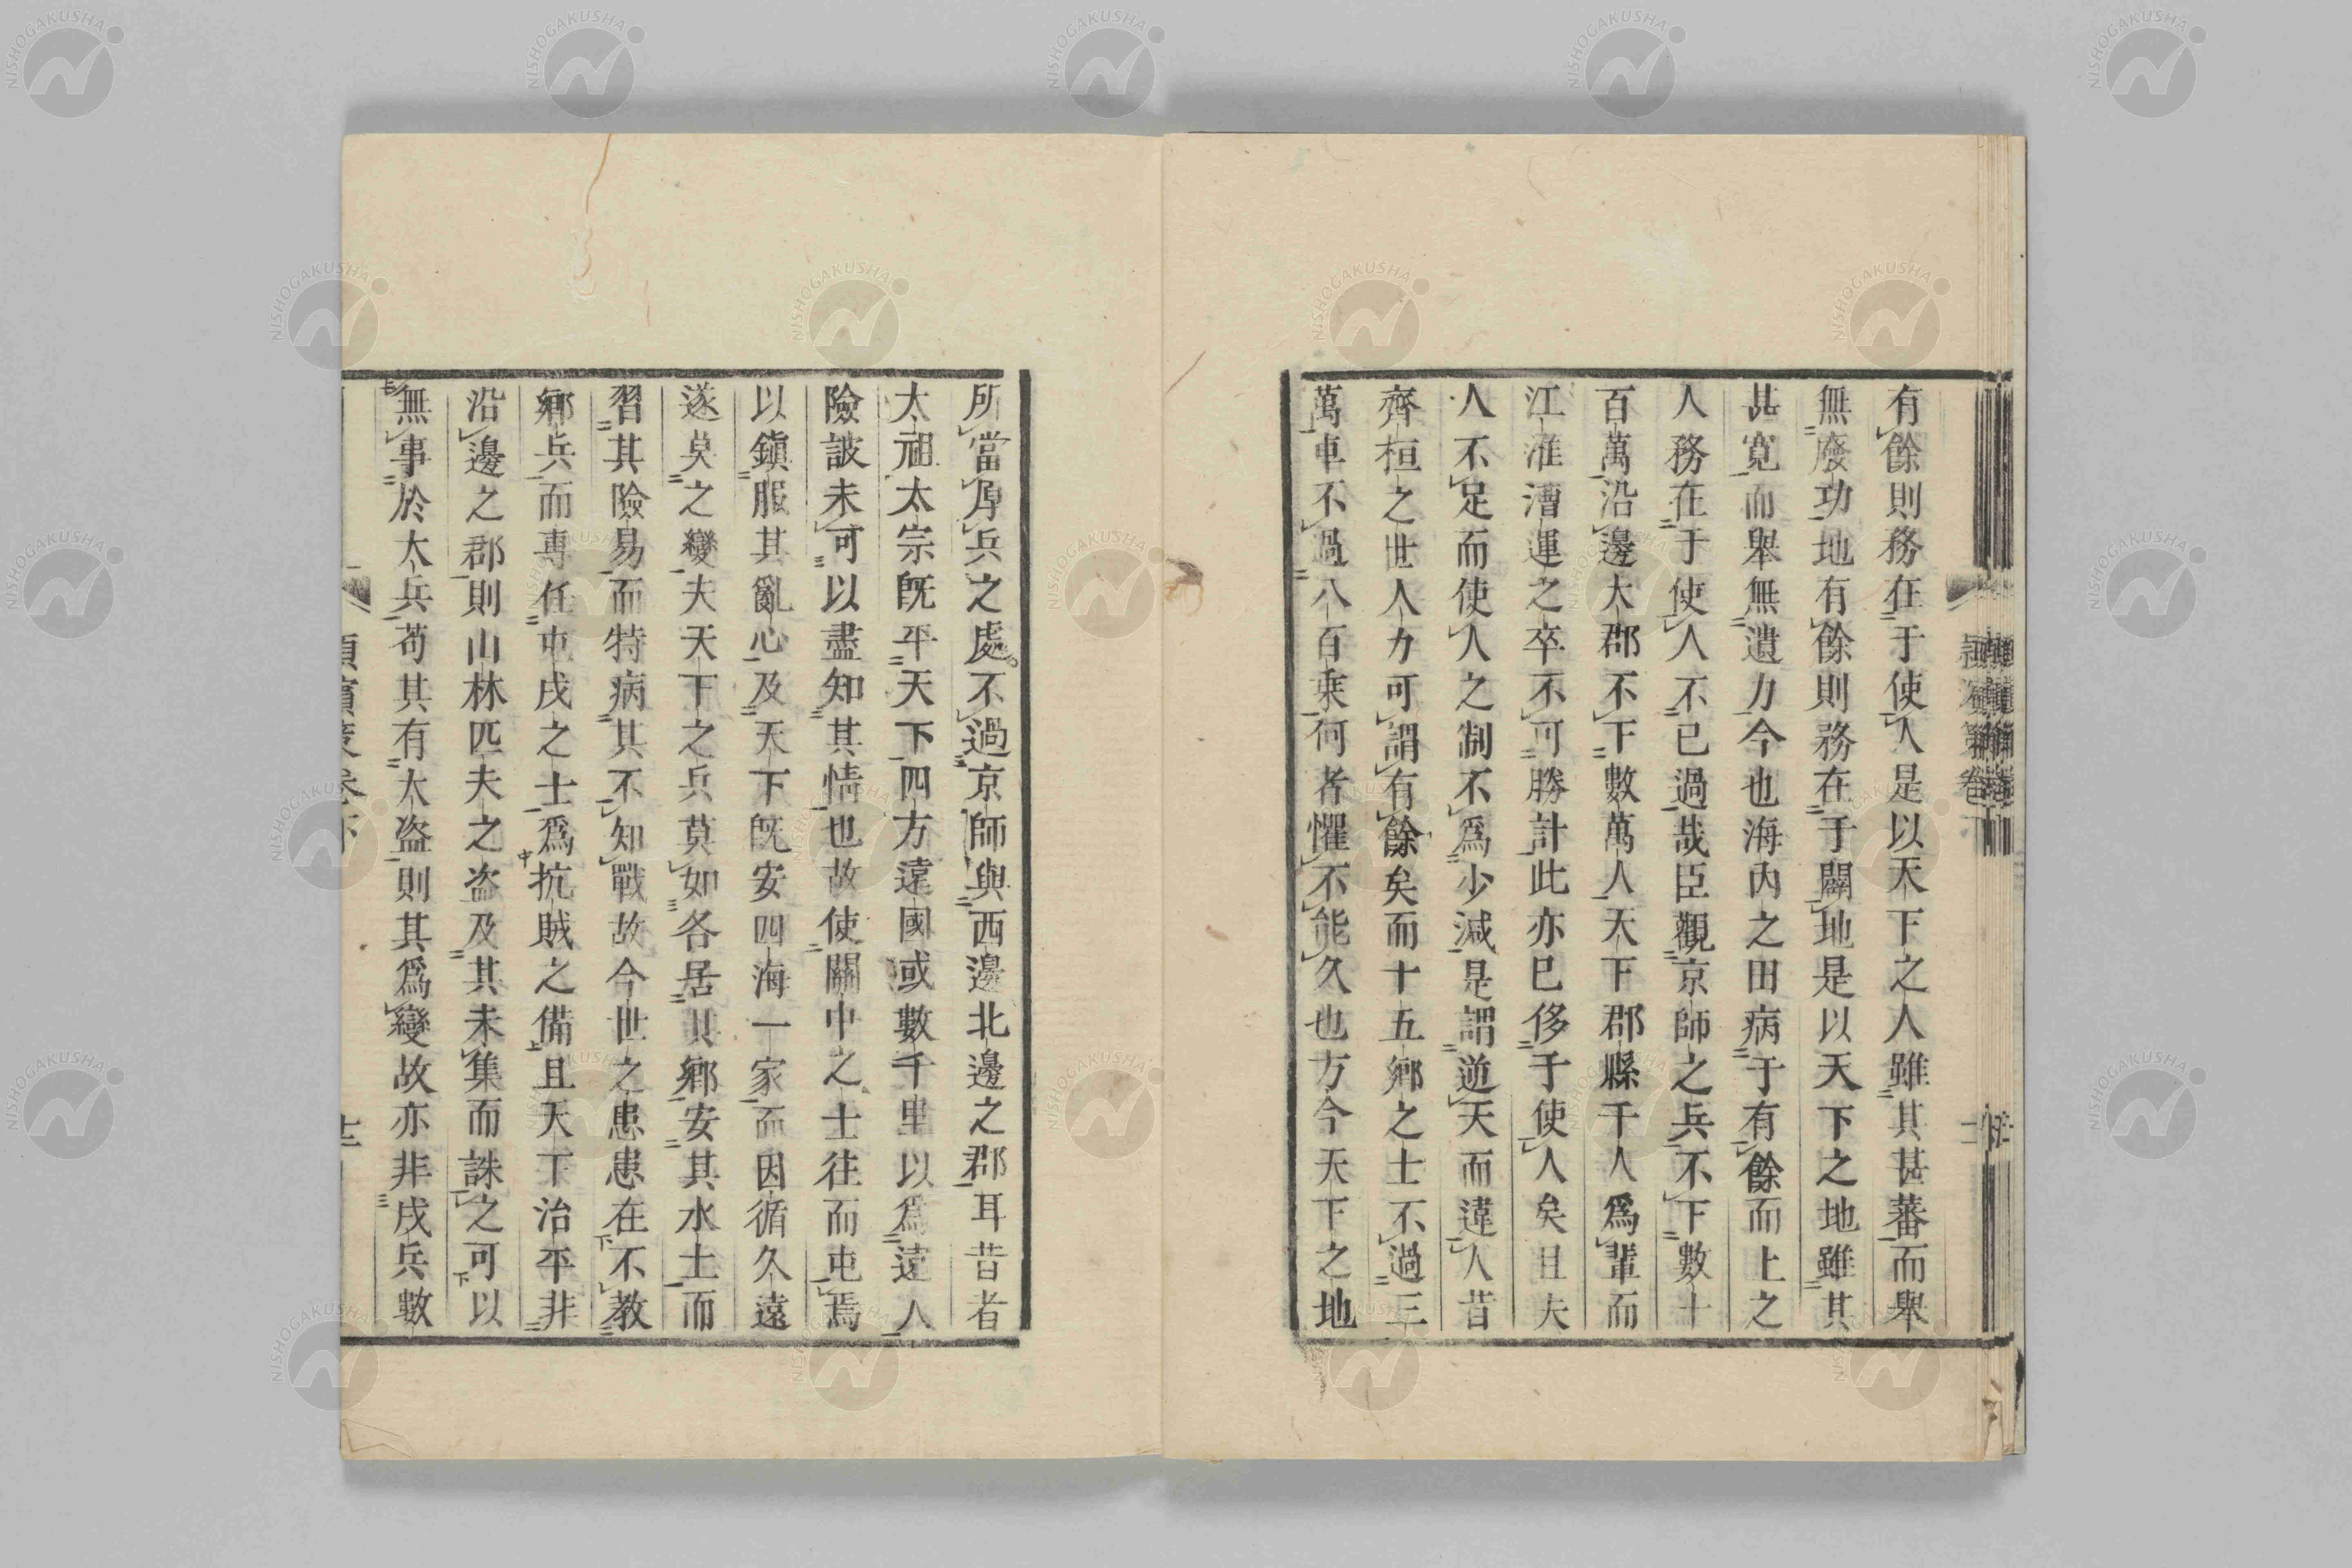 有餘則務在于使人是以天下之人雖其甚蕃而舉
無廢功地有餘則務在于闢地是以天下之地雖其
甚寬而舉無遺力今也海內之田病于有餘而上之
人務在于使人不已過哉臣觀京師之兵不下數十
百萬沿邊大郡不下數萬人天下郡縣千人爲輩而
江淮漕運之卒不可勝計此亦已侈于使人矣且夫
人不足而使人之制不爲少減是謂逆天而違人昔
齊桓之世人力可謂有餘矣而十五鄉之士不過三
萬車不過八百乘何者懼不能久也方今天下之地
所當厚兵之處不過京師與西邊北邊之郡耳昔者
太祖太宗旣平天下四方遠國或數千里以爲遠人
險詖未可以盡知其情也故使關中之士往而屯焉
以鎭服其亂心及天下旣安四海一家而因循久遠
遂莫之變夫天下之兵莫如各居其鄉安其水土而
習其險易而特病其不知戰故今世之患患在不教
鄉兵而專任屯戍之士爲抗賊之備且天下治平非
沿邊之郡則山林匹夫之盜及其未集而誅之可以
無事於大兵苟其有大盜則其爲變故亦非戍兵數
潁濱策卷下
十二
NISHOGAKUSHA